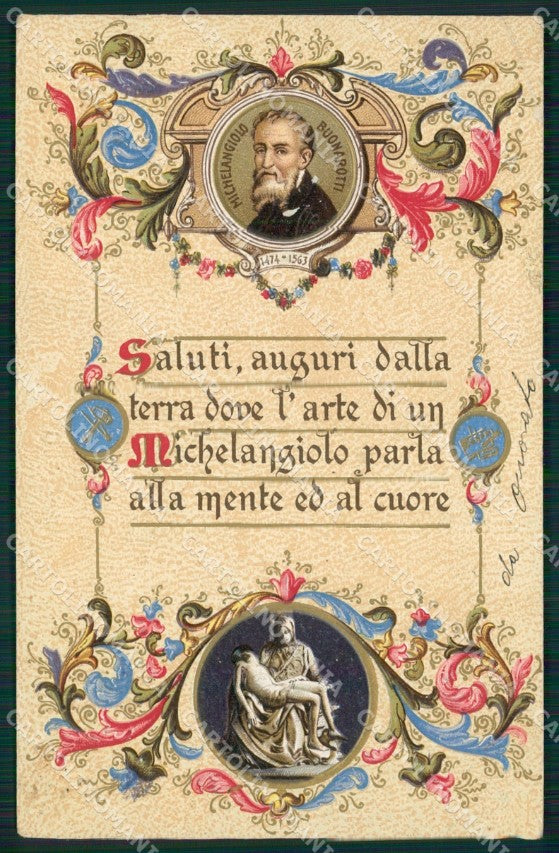 MICHELANGIOLO BUONAROTTI
1474-1563
Saluti, auguri dalla
terra dove l'arte di un
Michelangiolo parla
alla mente ed al cuore
da Onorato
CARTOLINOMANIA